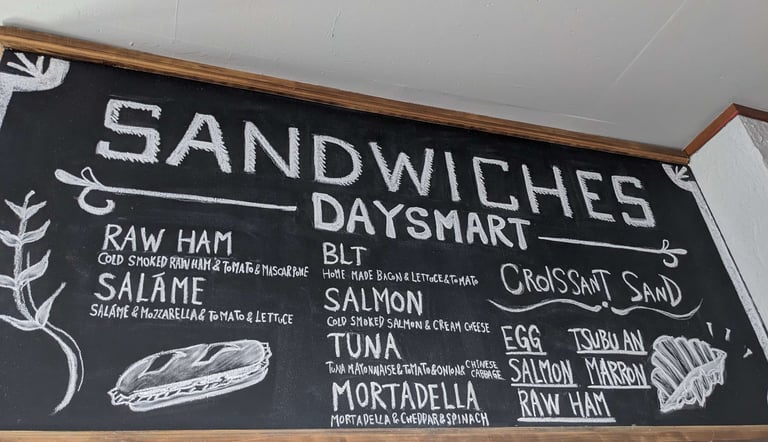 SANDWICHES
DAYSMART
RAW HAM
COLD SMOKED RAW HAM & TOMATO & MASCARPONE
SALÁME
SALÁME & MOZZARELLA & TOMATO & LETTUCE
BLT
HOME MADE BACON & LETTUCE & TOMATO
SALMON
COLD SMOKED SALMON & CREAM CHEESE
TUNA
TUNA MAYONNAISE & TOMATO & ONION & CHINESE CABBAGE
MORTADELLA
MORTADELLA & CHEDDAR & SPINACH
CROISSANT SAND
EGG TSUBUAN
SALMON MARRON
RAW HAM